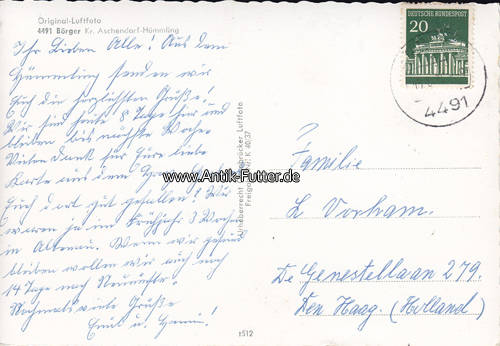 Original-Luftfoto
4491 Börger Kr. Aschendorf-Hümmling
Ihr Lieben Alle! Aus dem
Hümmling senden wir
Euch die herzlichsten Grüße!
Wir sind heute 8 Tage hier und
bleiben bis nächste Woche.
Vielen Dank für Eure liebe
Karte aus dem
Euch dort gut gefallen! Wir
waren ja im Frühjahr 3 Wochen
in Altenau. Wenn wir gesund
bleiben wollen wir auch noch
14 Tage nach
Nochmals viele Grüße
Erni u.
Urheberrecht Luftfoto
K 40/37
1512
DEUTSCHE BUNDESPOST
20
4491
Familie
L. Vorham.
De Genestellaan 279.
Den Haag. (Holland)
www.Antik-Futter.de